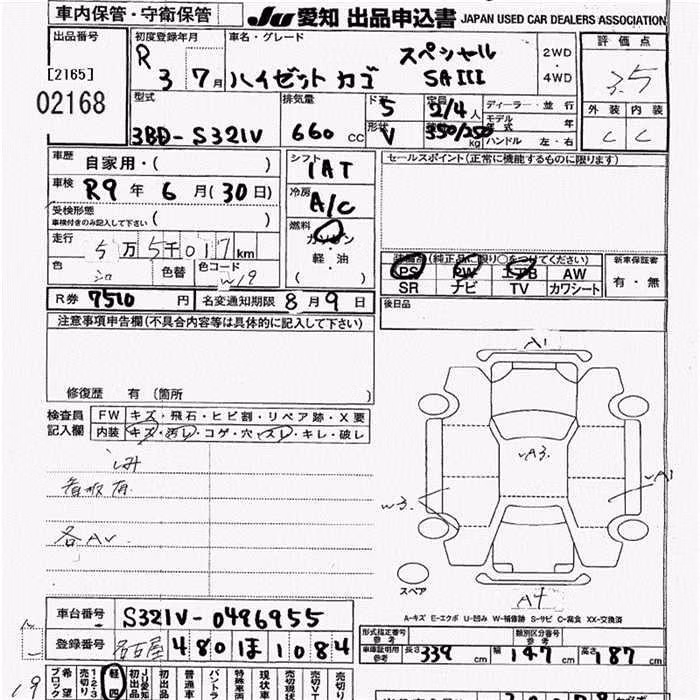 車内保管・守衛保管
JU 愛知 出品申込書 JAPAN USED CAR DEALERS ASSOCIATION
出品番号
[2165]
02168
初度登録年月
R 3 7月
車名・グレード
ハイゼットカゴ
スペシャル
SAIII
2WD
・
4WD
評価点
3.5
外装 内装
C C
型式
3BD-S321V
排気量
660 CC
ドア
5
形状
V
定員
2/4人
350/250 kg
ディーラー・並行
モデル年式 年
ハンドル 左・右
車歴 自家用・( )
車検 R9年 6月(30日)
受検形態
車検付きのみ記入して下さい ( )
走行 5万5千017km
色 シロ 色替 色コード W19
シフト
IAT
冷房
A/C
燃料
ガソリン
軽・油
( )
セールスポイント(正常に機能するものに限ります)
装備品(純正品に限り○をつけてください)
PS PW エアB AW
SR ナビ TV カワシート
新車保証書
有・無
R券 7510円 名変通知期限 8月9日
後日品
注意事項申告欄(不具合内容等は具体的に記入して下さい)
修復歴 有〔箇所 〕
検査員
記入欄
FW キズ・飛石・ヒビ割・リペア跡・X要
内装 キズ・汚レ・コゲ・穴・スレ・キレ・破レ
シミ
看板有
各AU.
A1
A3.
A1
W3.
A4
スペア
A-キズ E-エクボ U-凹み W-補修跡 S-サビ C-腐食 XX-交換済
車台番号 S321V-0496955
登録番号 名古屋 480 ほ 1084
形式指定番号
参考
類別区分番号
参考
車庫証明
参考
長さ 339 cm 幅 147 cm 高さ 187 cm
希望ブロック
売切り1・2・3
軽四
JU愛知初出品
初出品
普通車
バントラ
特殊車両
現状車
売切現状
売切VT
売切り